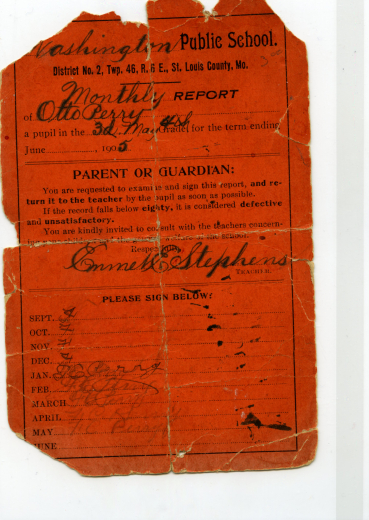 Washington Public School.
District No. 2, Twp. 46, R. 6 E., St. Louis County, Mo.
Monthly REPORT
of Otto Perry
a pupil in the 3d Grade for the term ending
June 1905
PARENT OR GUARDIAN:
You are requested to examine and sign this report, and re-
turn it to the teacher by the pupil as soon as possible.
If the record falls below eighty, it is considered defective
and unsatisfactory.
You are kindly invited to consult with the teachers concern-
Respectfully,
Emmet E Stephens
TEACHER.
PLEASE SIGN BELOW:
SEPT.
OCT.
NOV.
DEC.
JAN. Perry
FEB.
MARCH
APRIL
MAY
JUNE